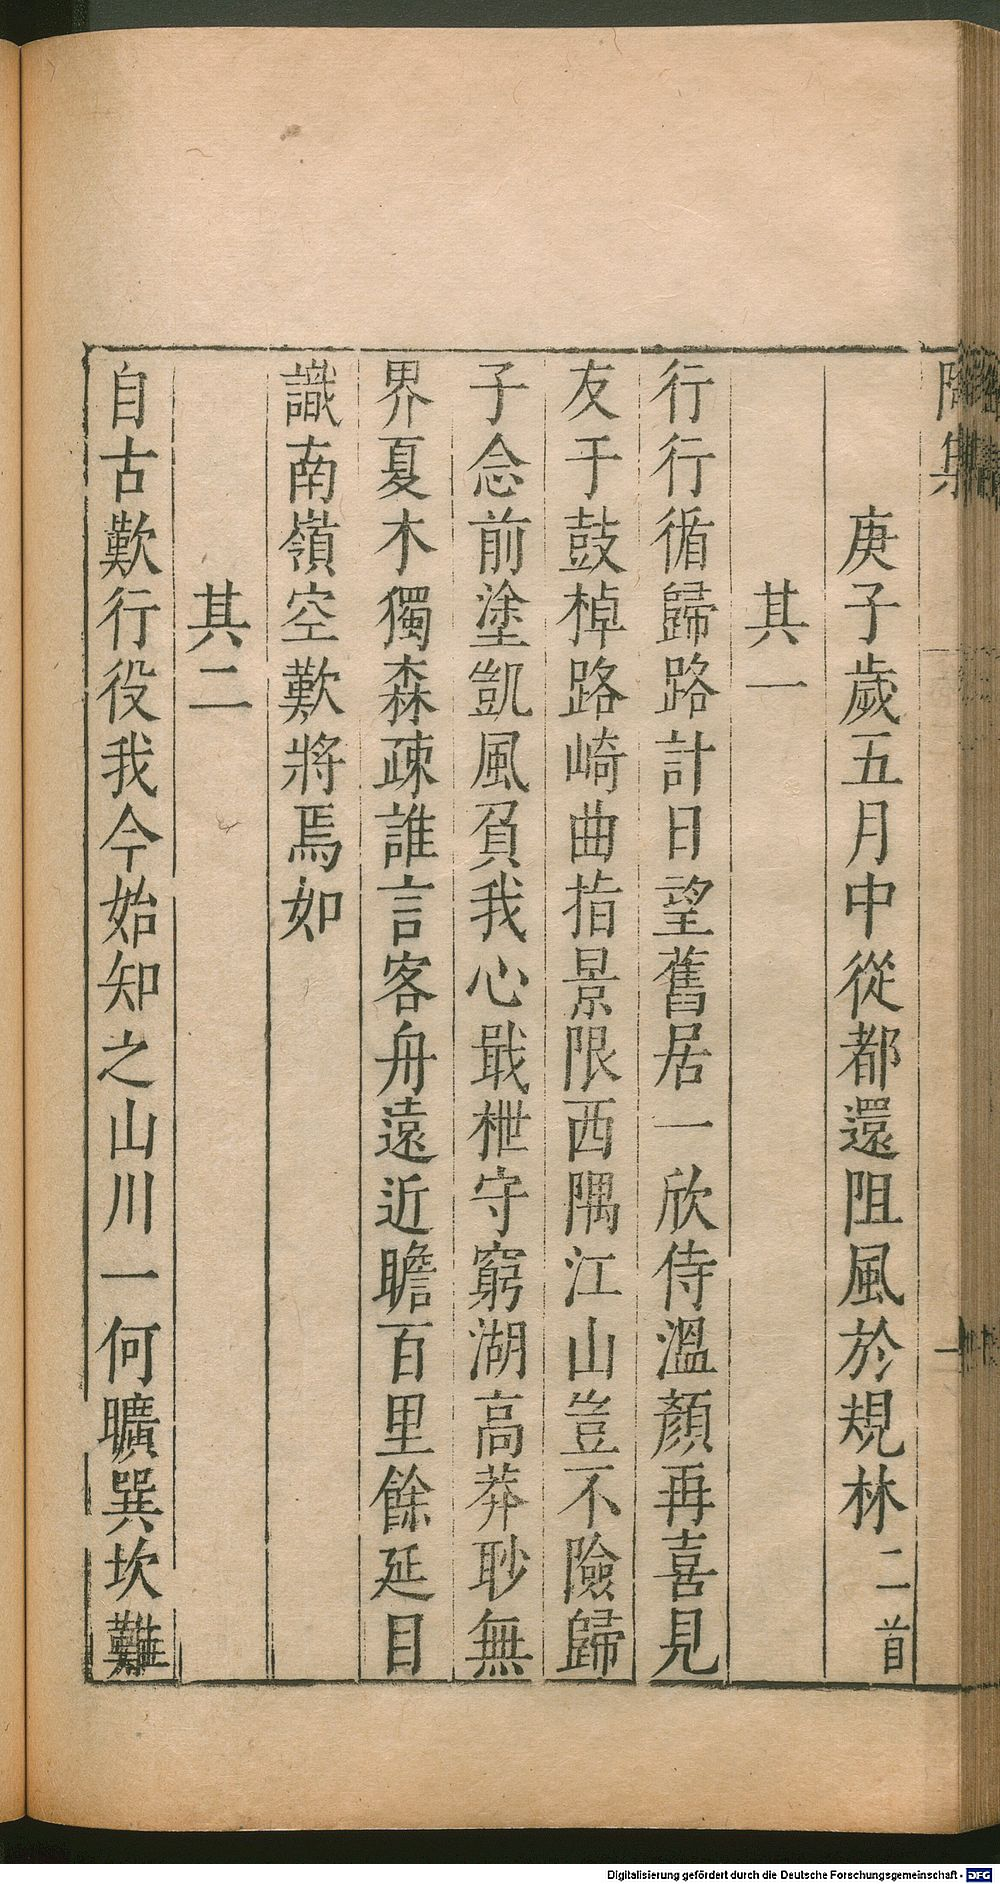 陶集
庚子歲五月中從都還阻風於規林二首
其一
行行循歸路計日望舊居一欣侍溫顏再喜見
友于鼓棹路崎曲指景限西隅江山豈不險歸
子念前塗凱風負我心戢枻守窮湖高莽眇無
界夏木獨森疎誰言客舟遠近瞻百里餘延目
識南嶺空歎將焉如
其二
自古歎行役我今始知之山川一何曠巽坎難
Digitalisierung gefördert durch die Deutsche Forschungsgemeinschaft - DFG